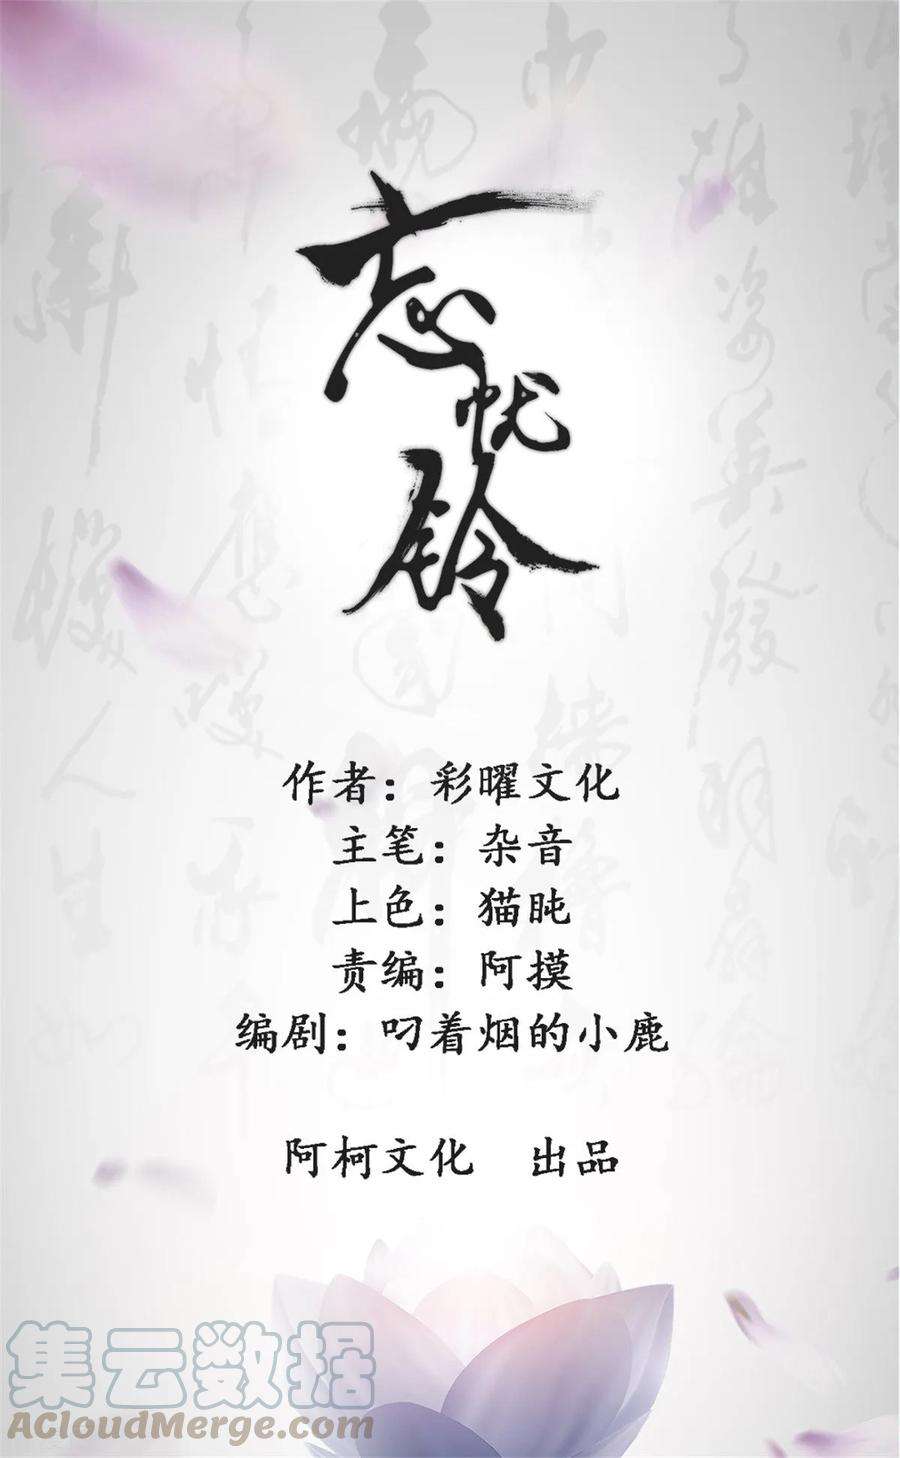 忘忧铃
作者：彩曜文化
主笔：杂音
上色：猫盹
责编：阿摸
编剧：叼着烟的小鹿
阿柯文化 出品
集云数据
ACloudMerge.com